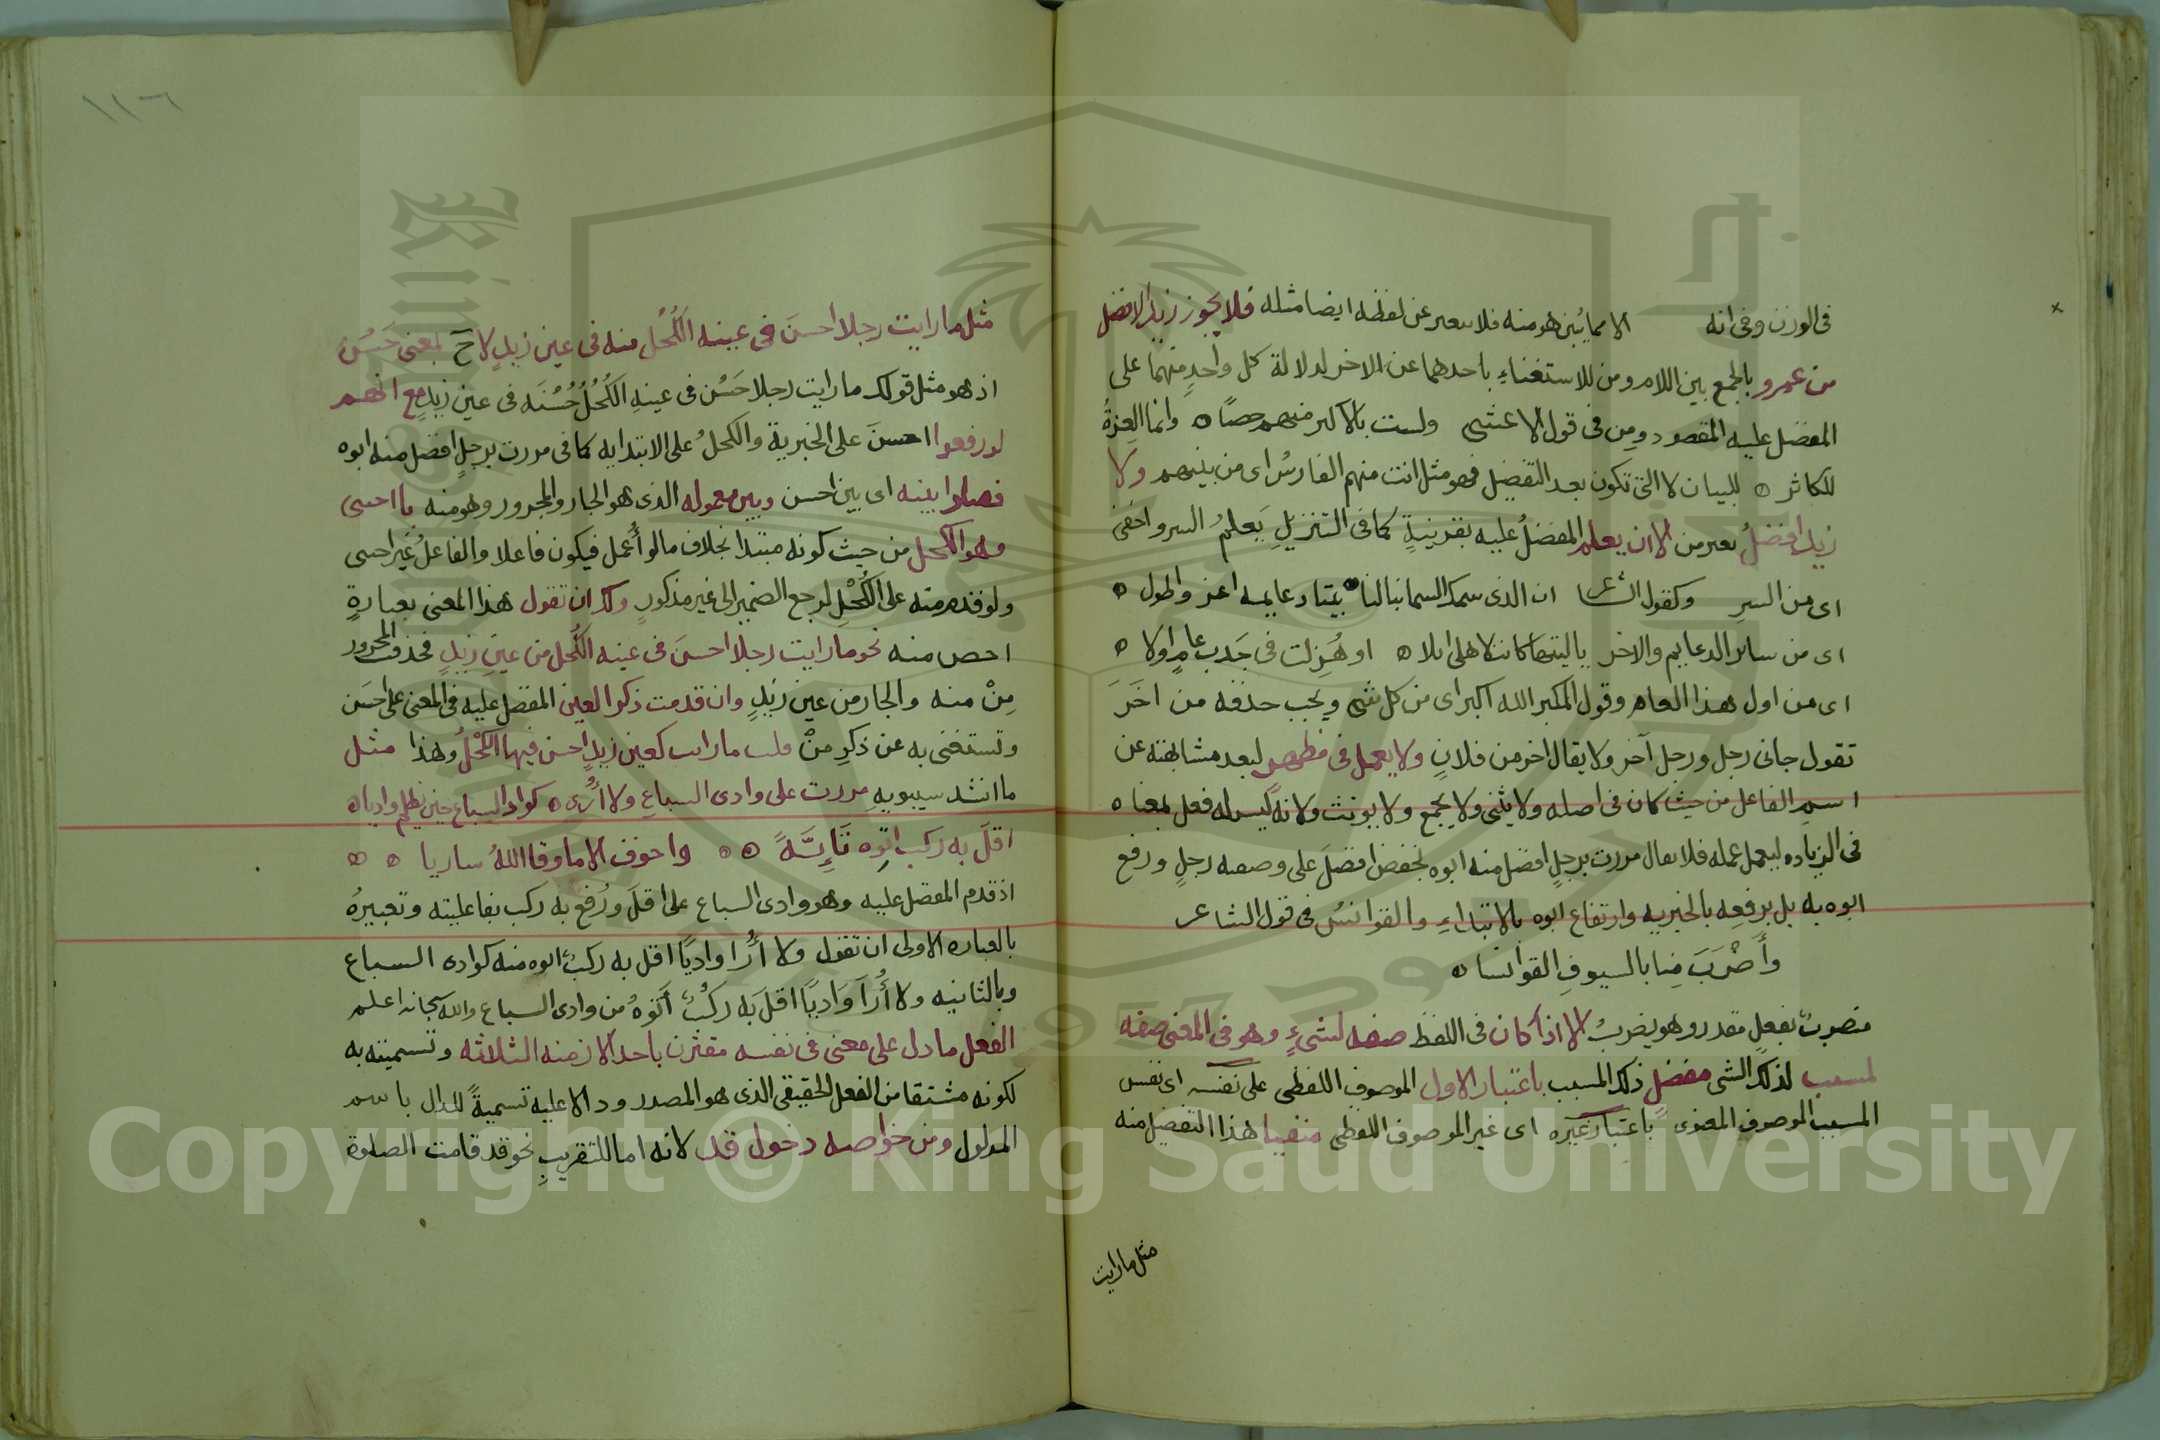 فى الوزن وفى انه الا مما يُبنى هو منه فلا يعبر عن لفظه ايضا مثله فلا يجوز زيد الافضل
من عمرو بالجمع بين اللام ومن للاستغناءِ باحدهما عن الاخر لدلالة كل واحدٍ منهما على
المفضل عليه المقصود ومِن فى قول الاعشى ولست بالاكثر منهم حصًا ۵ وانما العِزةُ
للكاثر ۵ للبيان لا التى تكون بعد التفضيل فهو مثل انت منهم الفارسُ اى من بينهم ولا
زيد افضلُ بغير من الا ان يعلم المفضلُ عليه بقرينةٍ كما فى التنزيلِ يَعلمُ السر واخفى
اى من السرِ وكقول الشاعر ان الذى سمك السما بنا لنا بيتا دعايمه اعز واطول ۵
اى من ساير الدعايم والاخر ياليتها كانت لاهلى ابلا ۵ او هُزِلت فى جَدب عامٍ اولا ۵
اى من اول هذا العام وقول المكبر الله اكبر اى من كل شى ويجب حذفه من اخَرَ
تقول جانى رجل ورجل آخر ولا يقال اخر من فلانٍ ولا يعمل فى مظهرٍ لبعد مشابهته عن
اسم الفاعل من حيث كان فى اصله ولا يثنى ولا يجمع ولا يونث ولانه ليس له فعل بمعناه
فى الزياده ليعمل عمله فلا يقال مررت برجلٍ افضل منه ابوه بخفض افضلَ على وصفه رجلٍ ورفع
ابوه به بل برفعِه بالخبريه وارتفاع ابوه بالابتداءِ والقوانسُ فى قول الشاعر
وأَضْرَبَ مِنا بالسيوفِ القوانسا ۵
منصوبٌ بفعلٍ مقدر وهو يضربُ الا اذا كان فى اللفظ صفه لشىءٍ وهو فى المعنى صفه
لمسبب لذلك الشى مفضلٍ ذلك المسبب باعتبار الاول الموصوف اللفظى على نفسه اى نفس
المسبب الموصوف المعنوى باعتبار غيره اى غير الموصوف اللفظى منفيا هذا التفضيل منه
مثل مارايت
١١٦
مثل مارايت رجلا احسنَ فى عينه الكُحلُ منه فى عين زيدٍ لاحَ بمعنى حَسُن
اذ هو مثل قولك مارايت رجلا حَسُن فى عينهِ الكُحْلُ حُسْنَه فى عين زيدٍ مع انهم
لو رفعوا احسنَ على الخبرية والكحلُ على الابتدايه كما فى مررت برجلٍ افضلُ منه ابوه
فصلوا بينه اى بين احسن وبين معموله الذى هو الجار والمجرور وهو منه باجنبى
وهو الكحل من حيث كونه مبتدا بخلاف ما لو أُعمل فيكون فاعلا والفاعلُ غير اجنبى
ولو قدم منه على الكُحْلِ لرجع الضمير الى غير مذكورٍ ولك ان تقول هذا المعنى بعبارةٍ
اخصر منه نحو مارايت رجلا احسنَ فى عينه الكُحل من عينِ زيدٍ فحذفت المجرور
مِنْ منه والجار من عين زيدٍ وان قدمت ذكر العين المفضل عليه فى المعنى على احسَن
وتستغنى به عن ذكرِ مِنْ قلت مارايت كعين زيدٍ احسن فيها الكحْلُ وهذا مثل
ما انشد سيبويهِ مررت على وادى السباعِ ولا أرى ۵ كوادى السباع حين يظلم واديا ۵
اقلَ به ركب اتوه تَايِيَّةً ۵ ۵ واخوف الا ما وقا اللهُ ساريا ۵ ۵
اذ قدم المفضل عليه وهو وادى السباع على اقلَ ورُفعَ به ركب بفاعليته وتعبيرُه
بالعباره الاولى ان تقول ولا أرا واديًا اقل به ركبٌ اتوه منه كوادى السباع
وبالثانيه ولا أُرَا وَاديًا اقلَ به ركْبٌ أَتوهُ من وادى السباع والله سبحانه اعلم
الفعل ما دل على معنى فى نفسه مقترن باحد الازمنه الثلاثه وتسميته به
لكونه مشتقا من الفعل الحقيقى الذى هو المصدر ودالا عليه تسميةً للدال باسم
المدلول ومن خواصه دخول قد لانه اما للتقريبِ نحو قد قامت الصلوة
Copyright © King Saud University